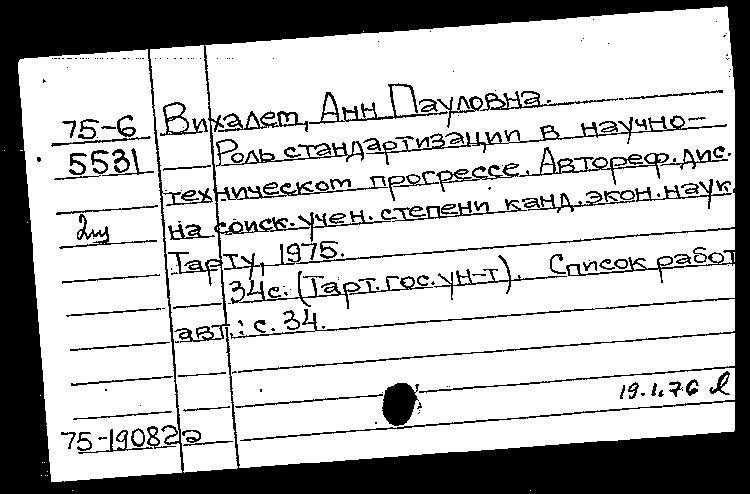 75-6 Вихалет, Анн Пауловна.
5531 Роль стандартизации в научно-
техническом прогрессе. Автореф. дис.
на соиск. учен. степени канд. экон. наук.
Тарту, 1975.
34с. (Тарт. гос. ун-т). Список работ
авт.: с. 34.
19.1.76
75-19082